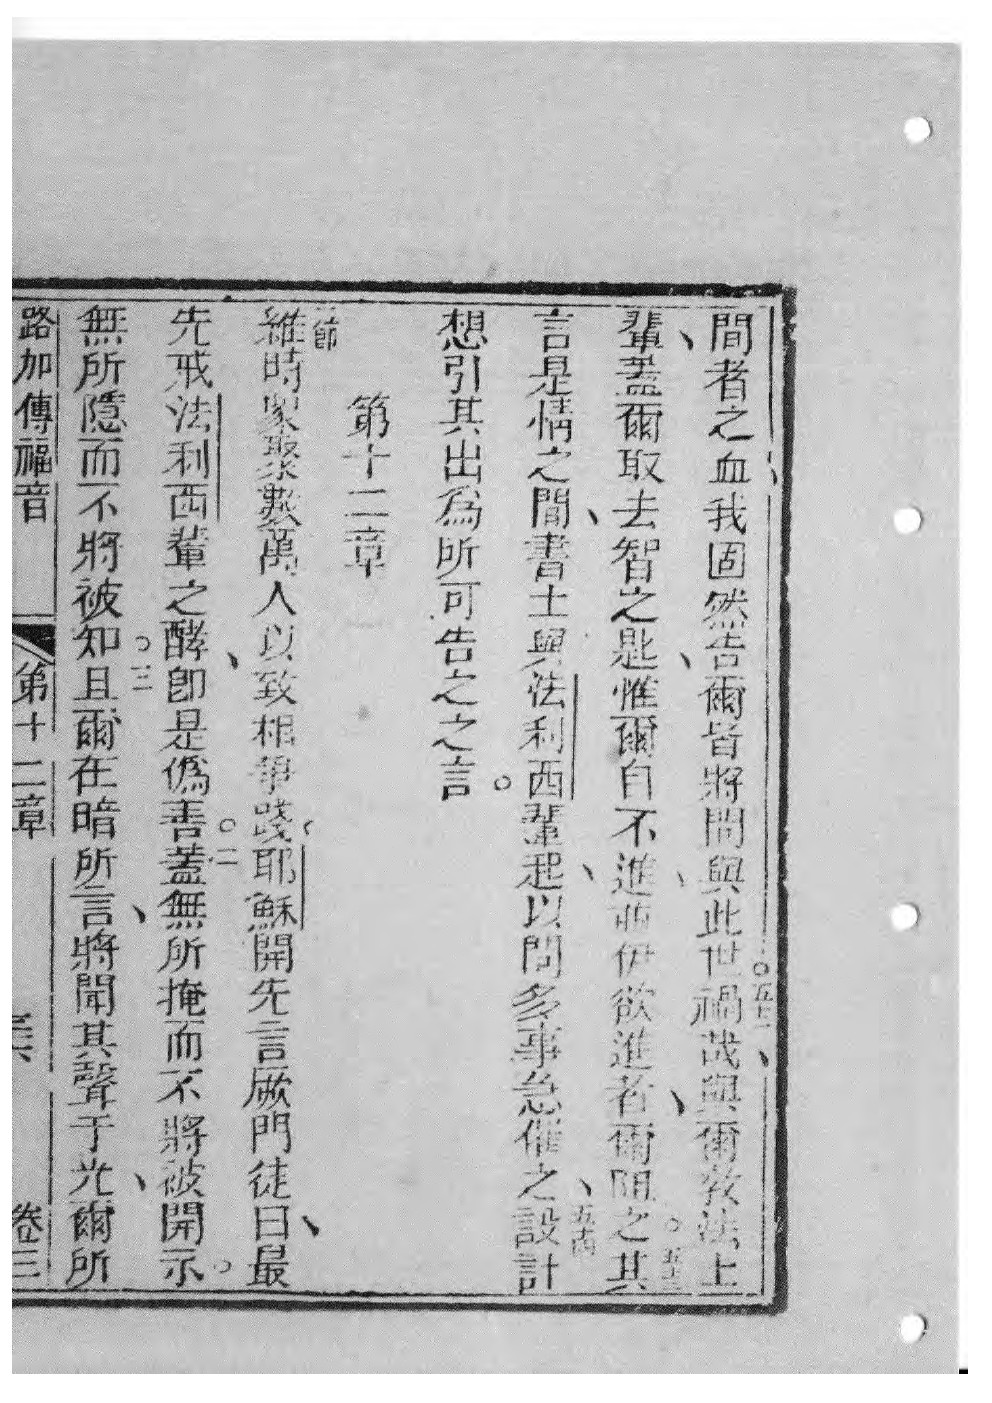 間者之血我固然告爾皆將問與此世。五十二禍哉與爾教法士
輩、蓋爾取去智之匙、惟爾自不進、而伊欲進者、爾阻之。五十三其
言是情之間、書士與法利西輩起、以問多事、急催之、五十四設計
想引其出為所可告之之言。
第十二章
一節維時眾聚數萬人以致相爭踐、耶穌開先言厥門徒曰、最
先戒法利西輩之酵、即是偽善。二蓋無所掩而不將被開示。
無所隱而不將被知。三且爾在暗所言、將聞其聲于光、爾所
路加傳福音 第十二章 卷三